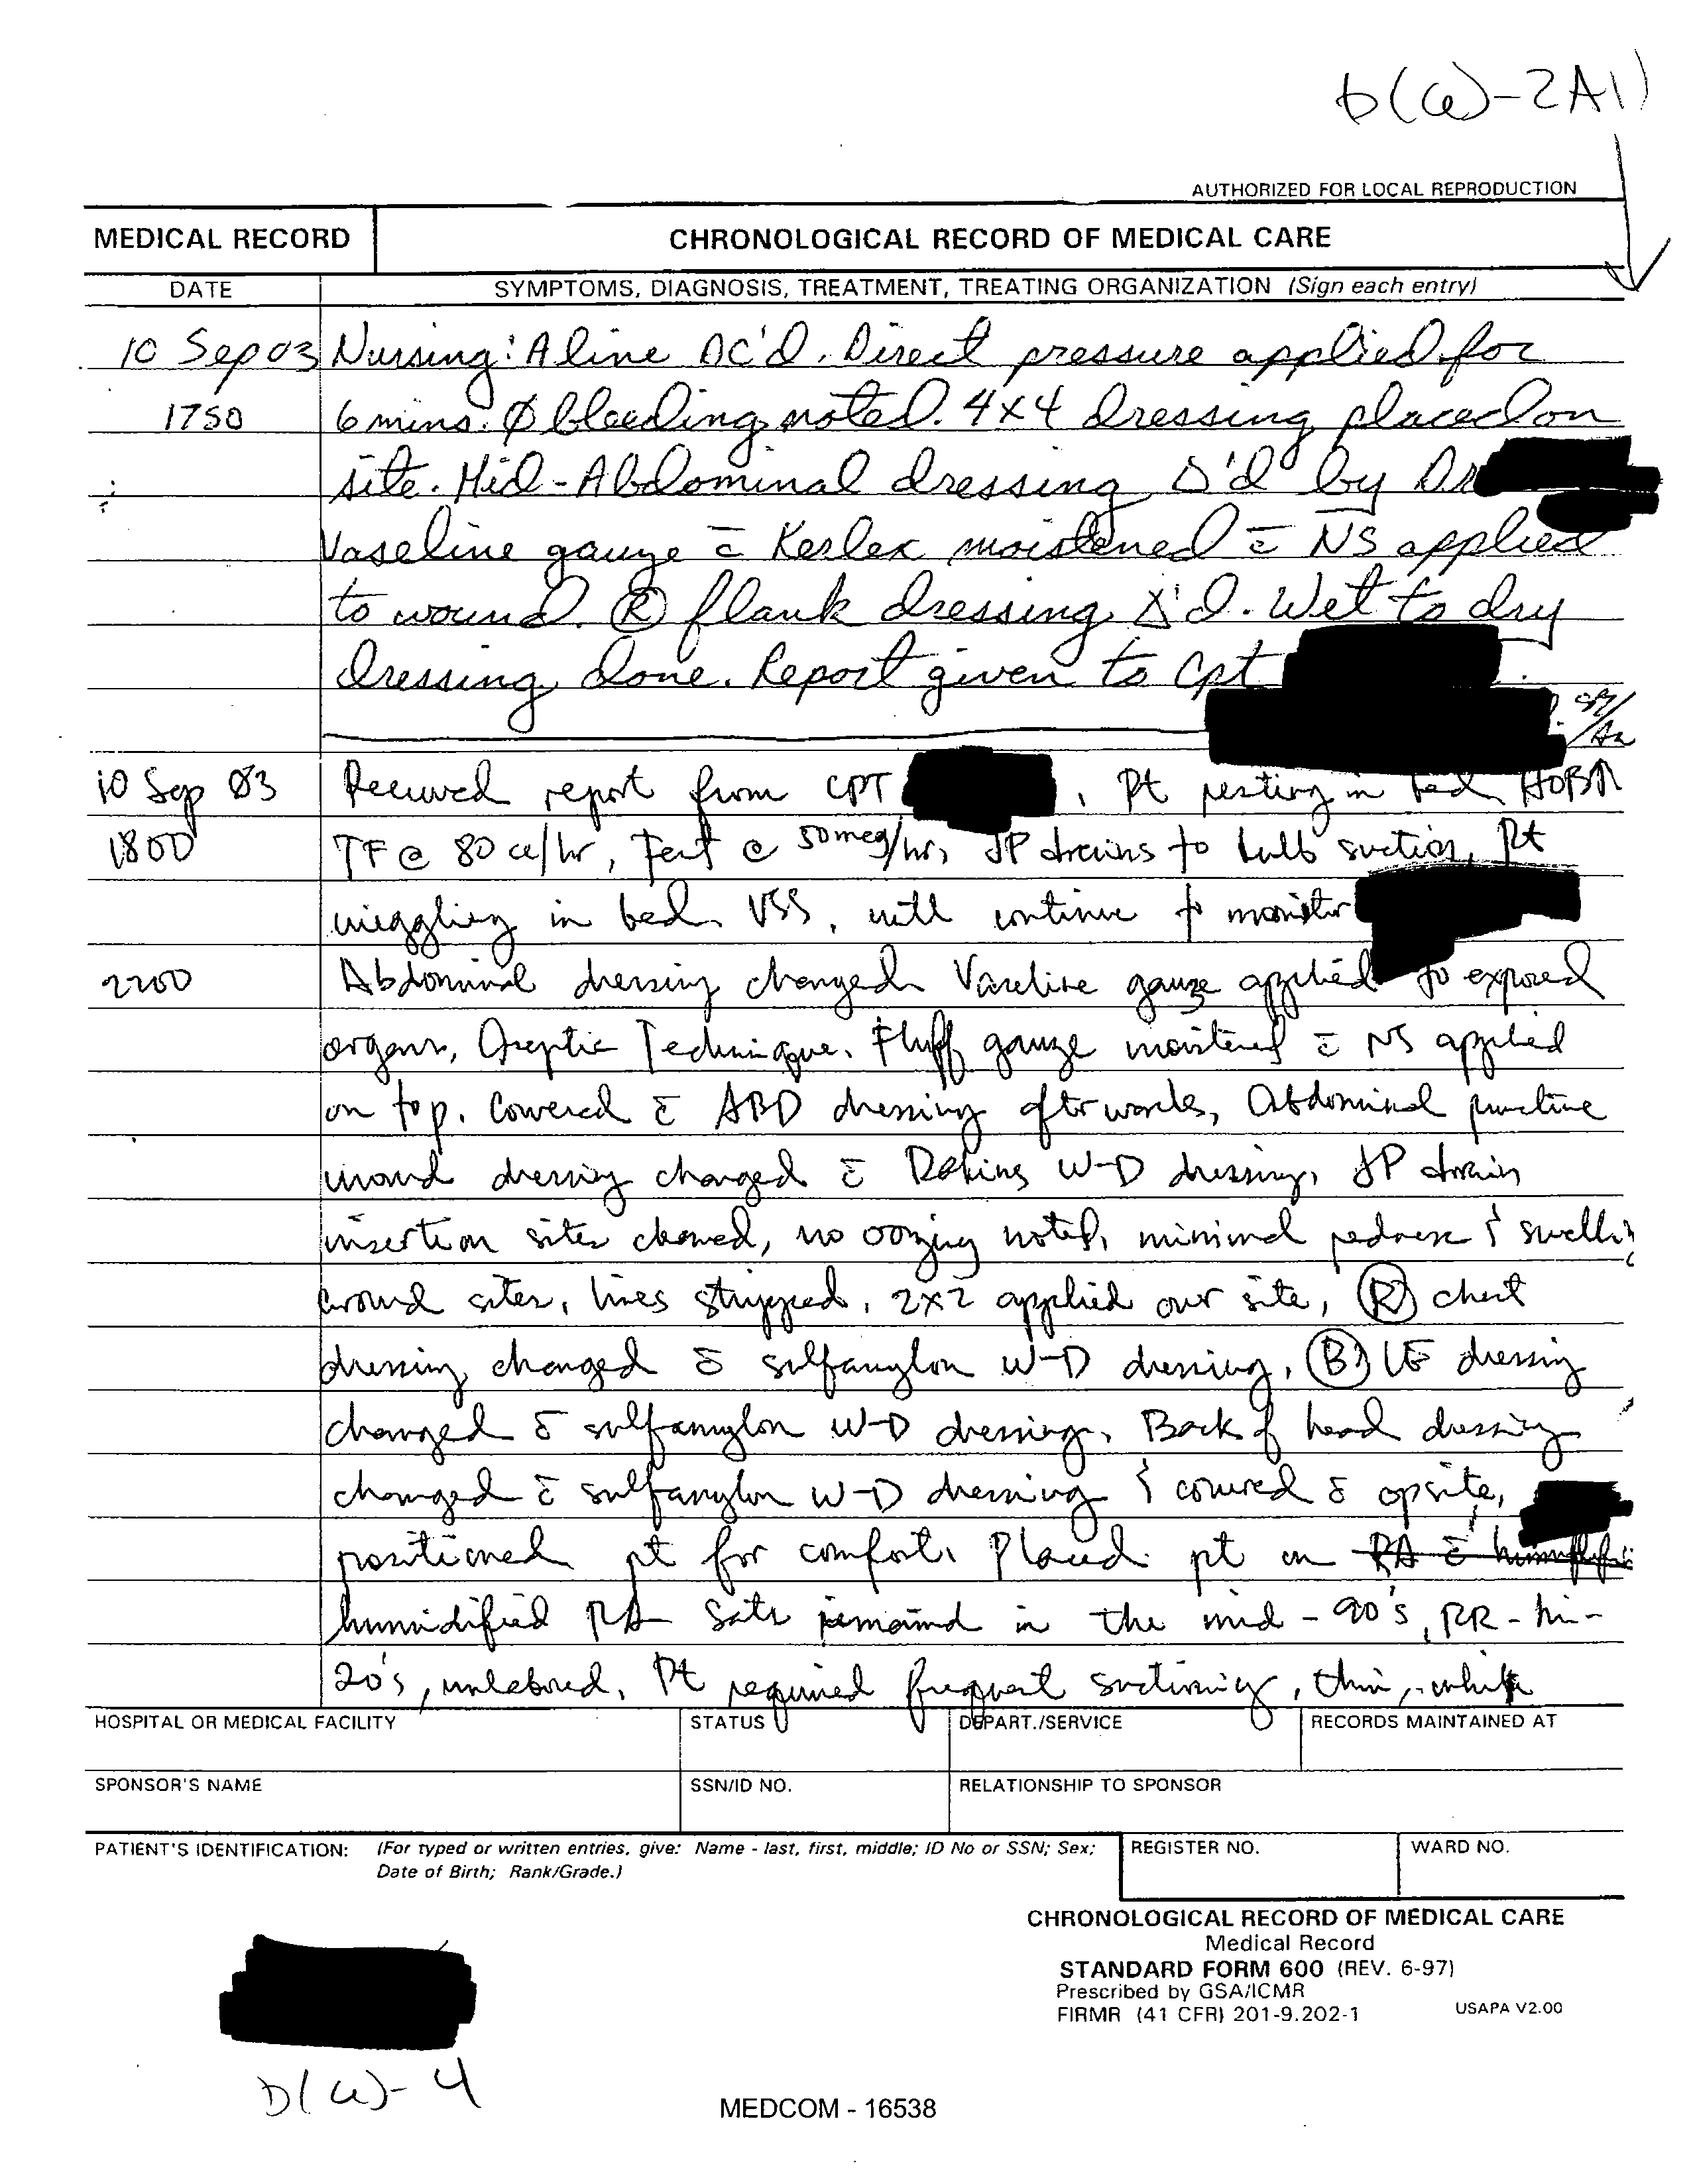 b(6)-2 All
AUTHORIZED FOR LOCAL REPRODUCTION
MEDICAL RECORD
CHRONOLOGICAL RECORD OF MEDICAL CARE
DATE
SYMPTOMS, DIAGNOSIS, TREATMENT, TREATING ORGANIZATION (Sign each entry)
10 Sep 03 Nursing: A line DC'd. Direct pressure applied for
1750 6 mins. Ø bleeding noted. 4x4 dressing placed on
site. Mid-Abdominal dressing Δ'd by Dr
Vaseline gauze c̄ Kerlex moistened c̄ NS applied
to wound. Ⓡ flank dressing Δ'd. Wet to dry
dressing done. Report given to Cpt
10 Sep 03 Received report from CPT , Pt resting in bed, HOB↑
1800 TF @ 80 cc/hr, Fent @ 50mcg/hr, JP drains to bulb suction, Pt
wiggling in bed, VSS, will continue to monitor
2200 Abdominal dressing changed. Vaseline gauze applied to exposed
organs, Aseptic Technique. Fluff gauze moistened c̄ NS applied
on top. Covered c̄ ABD dressing afterwards, Abdominal puncture
wound dressing changed c̄ Dakins W-D dressing, JP drain
insertion sites cleaned, no oozing noted, minimal redness & swelling
around sites, lines stripped, 2x2 applied over site, Ⓡ chest
dressing changed c̄ sulfamylon W-D dressing, Ⓑ LE dressing
changed c̄ sulfamylon W-D dressing. Back of head dressing
changed c̄ sulfamylon W-D dressing & covered c̄ opsite,
positioned pt for comfort. Placed pt on RA c̄
humidified RA sats remained in the mid-90's, RR-hi-
20's, unlabored, Pt required frequent suctioning, thin, white
HOSPITAL OR MEDICAL FACILITY
STATUS
DEPART./SERVICE
RECORDS MAINTAINED AT
SPONSOR'S NAME
SSN/ID NO.
RELATIONSHIP TO SPONSOR
PATIENT'S IDENTIFICATION: (For typed or written entries, give: Name - last, first, middle; ID No or SSN; Sex;
Date of Birth; Rank/Grade.)
REGISTER NO.
WARD NO.
CHRONOLOGICAL RECORD OF MEDICAL CARE
Medical Record
STANDARD FORM 600 (REV. 6-97)
Prescribed by GSA/ICMR
FIRMR (41 CFR) 201-9.202-1
USAPA V2.00
b(6)-4
MEDCOM - 16538